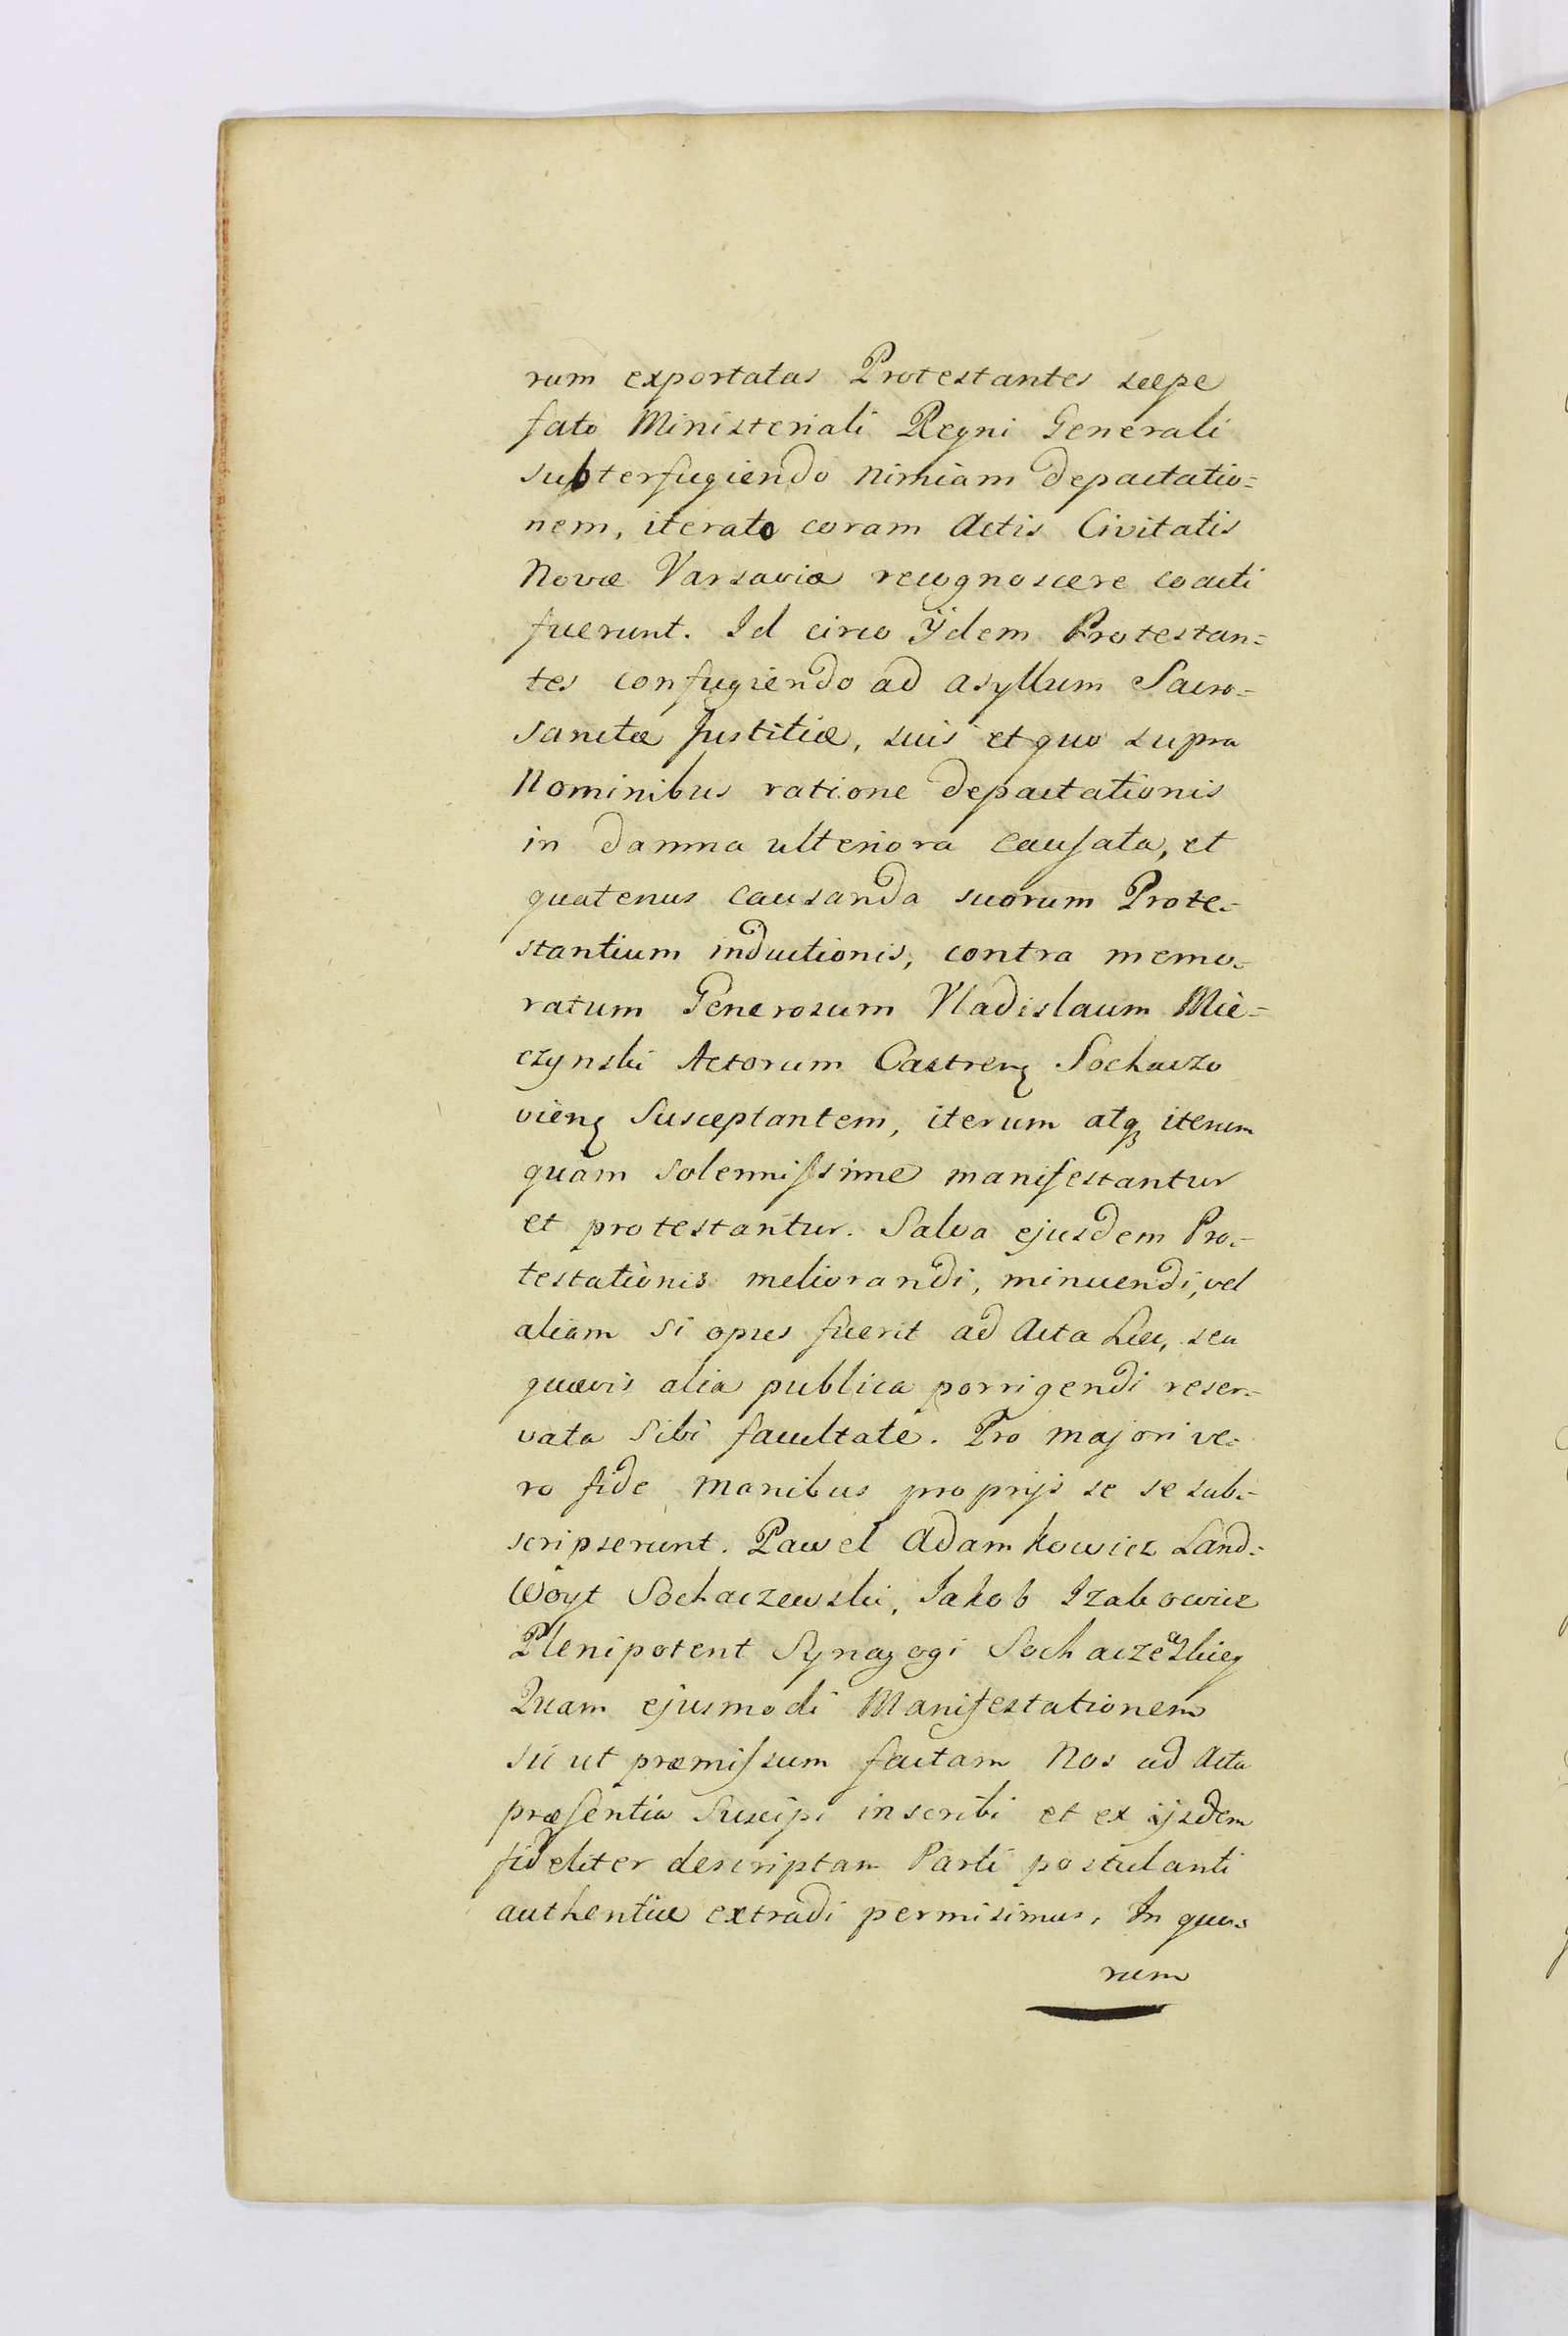 rum exportatas Protestantes sæpe
fato Ministeriali Regni Generali
subterfugiendo nimiam depactatio=
nem, iterato coram Actis Civitatis
Novæ Varsaviæ recognoscere coacti
fuerunt. Id circo ÿdem Protestan=
tes confugiendo ad asyllum Sacro=
sanctæ Justitiæ, suis et quo supra
Nominibus ratione depactationis
in damna ulteriora causata, et
quatenus causanda suorum Prote=
stantium inductionis, contra memo=
ratum Generosum Vladislaum Mie=
czynski Actorum Castrenῳ Sochaczo
vienῳ Susceptantem, iterum atq iterum
quam solennissime manifestantur
et protestantur. Salva ejusdem Pro=
testationis meliorandi, minuendi, vel
aliam si opus fuerit ad Acta hæc, seu
quævis alia publica porrigendi reser=
vata sibi facultate. Pro majori ve=
ro fide manibus proprijs se se sub=
scripserunt. Pawel Adamkowicz Land=
Woyt Sochaczewski, Jakob Izakowicz
Plenipotent Synagogi Sochaczewskiey
Quam ejusmodi Manifestationem
sic ut præmissum factam Nos ad Acta
præsentia Suscipi inscribi et ex ijsdem
fideliter descriptam Parti postulanti
authentice extradi permisimus. In quo=
rum